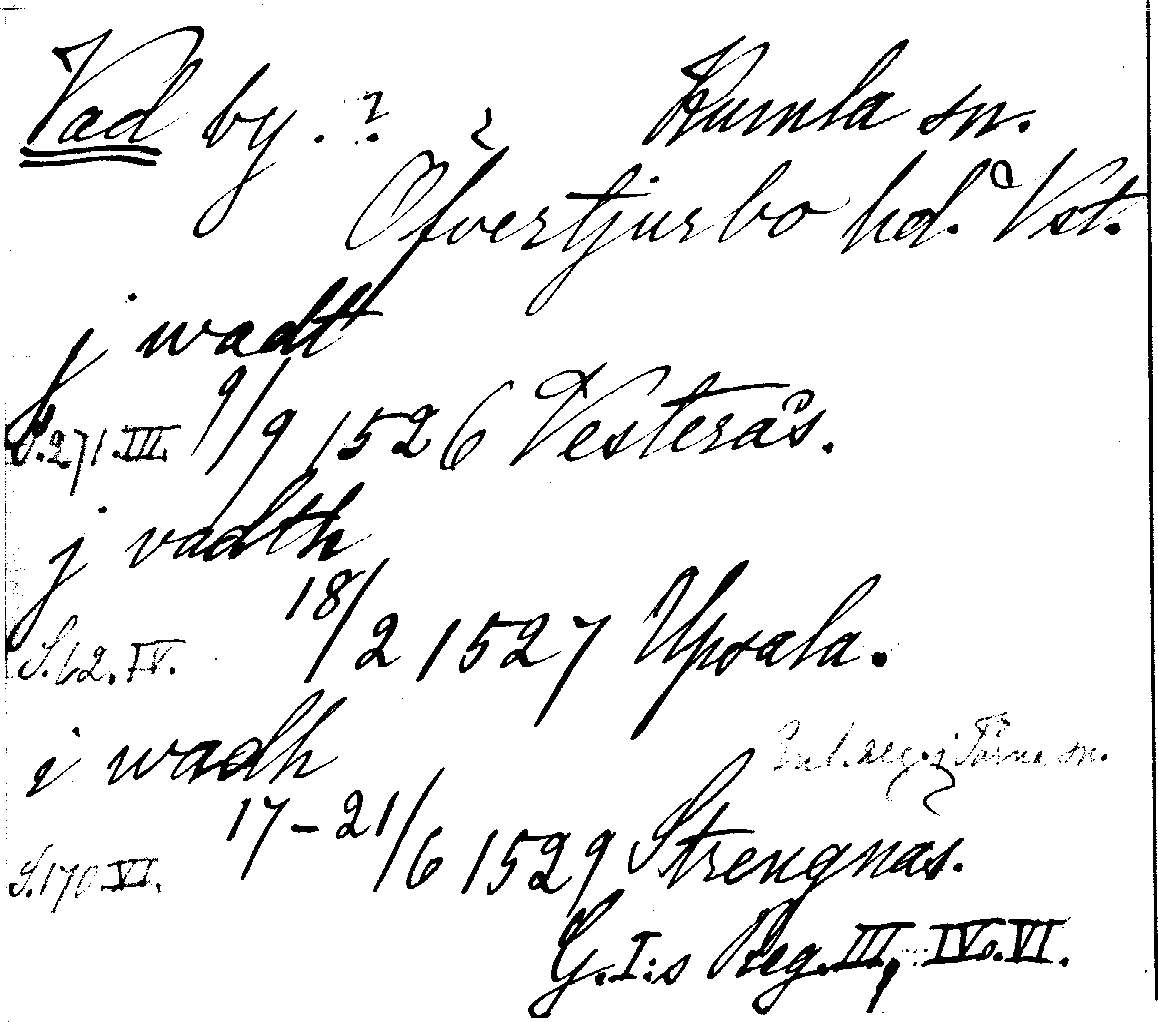 Vad by. ? Kumla sn.
Öfvertjurbo hd. Vst.
j wadt
S. 271. III. 9/9 1526 Vesterås.
j vadth
S. 62. IV. 18/2 1527 Upsala.
i wadh
Enl. reg. i Törne sn.
S. 170 VI. 17-21/6 1529 Strengnäs.
G. I:s Reg. III, IV. VI.